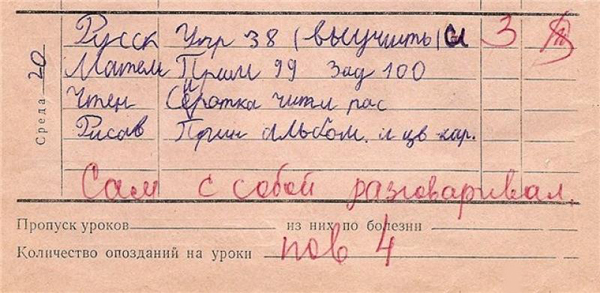 Среда 20
Русск Упр 38 (выучить) 3
Матем Прим 99 Зад 100
Чтен Сиротка читл рас
Рисов Прин альбом. и цв кар.
Сам с собой разговаривал.
Пропуск уроков из них по болезни
Количество опозданий на уроки
пов 4